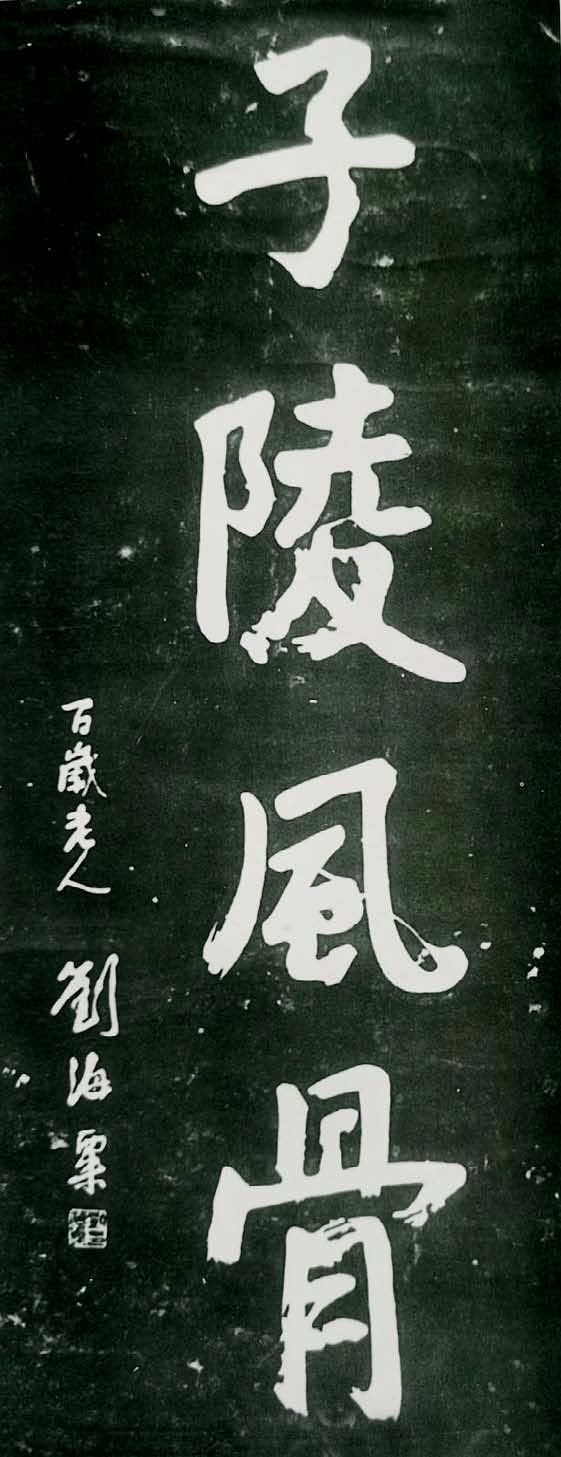 子陵風骨
百歲老人 劉海粟